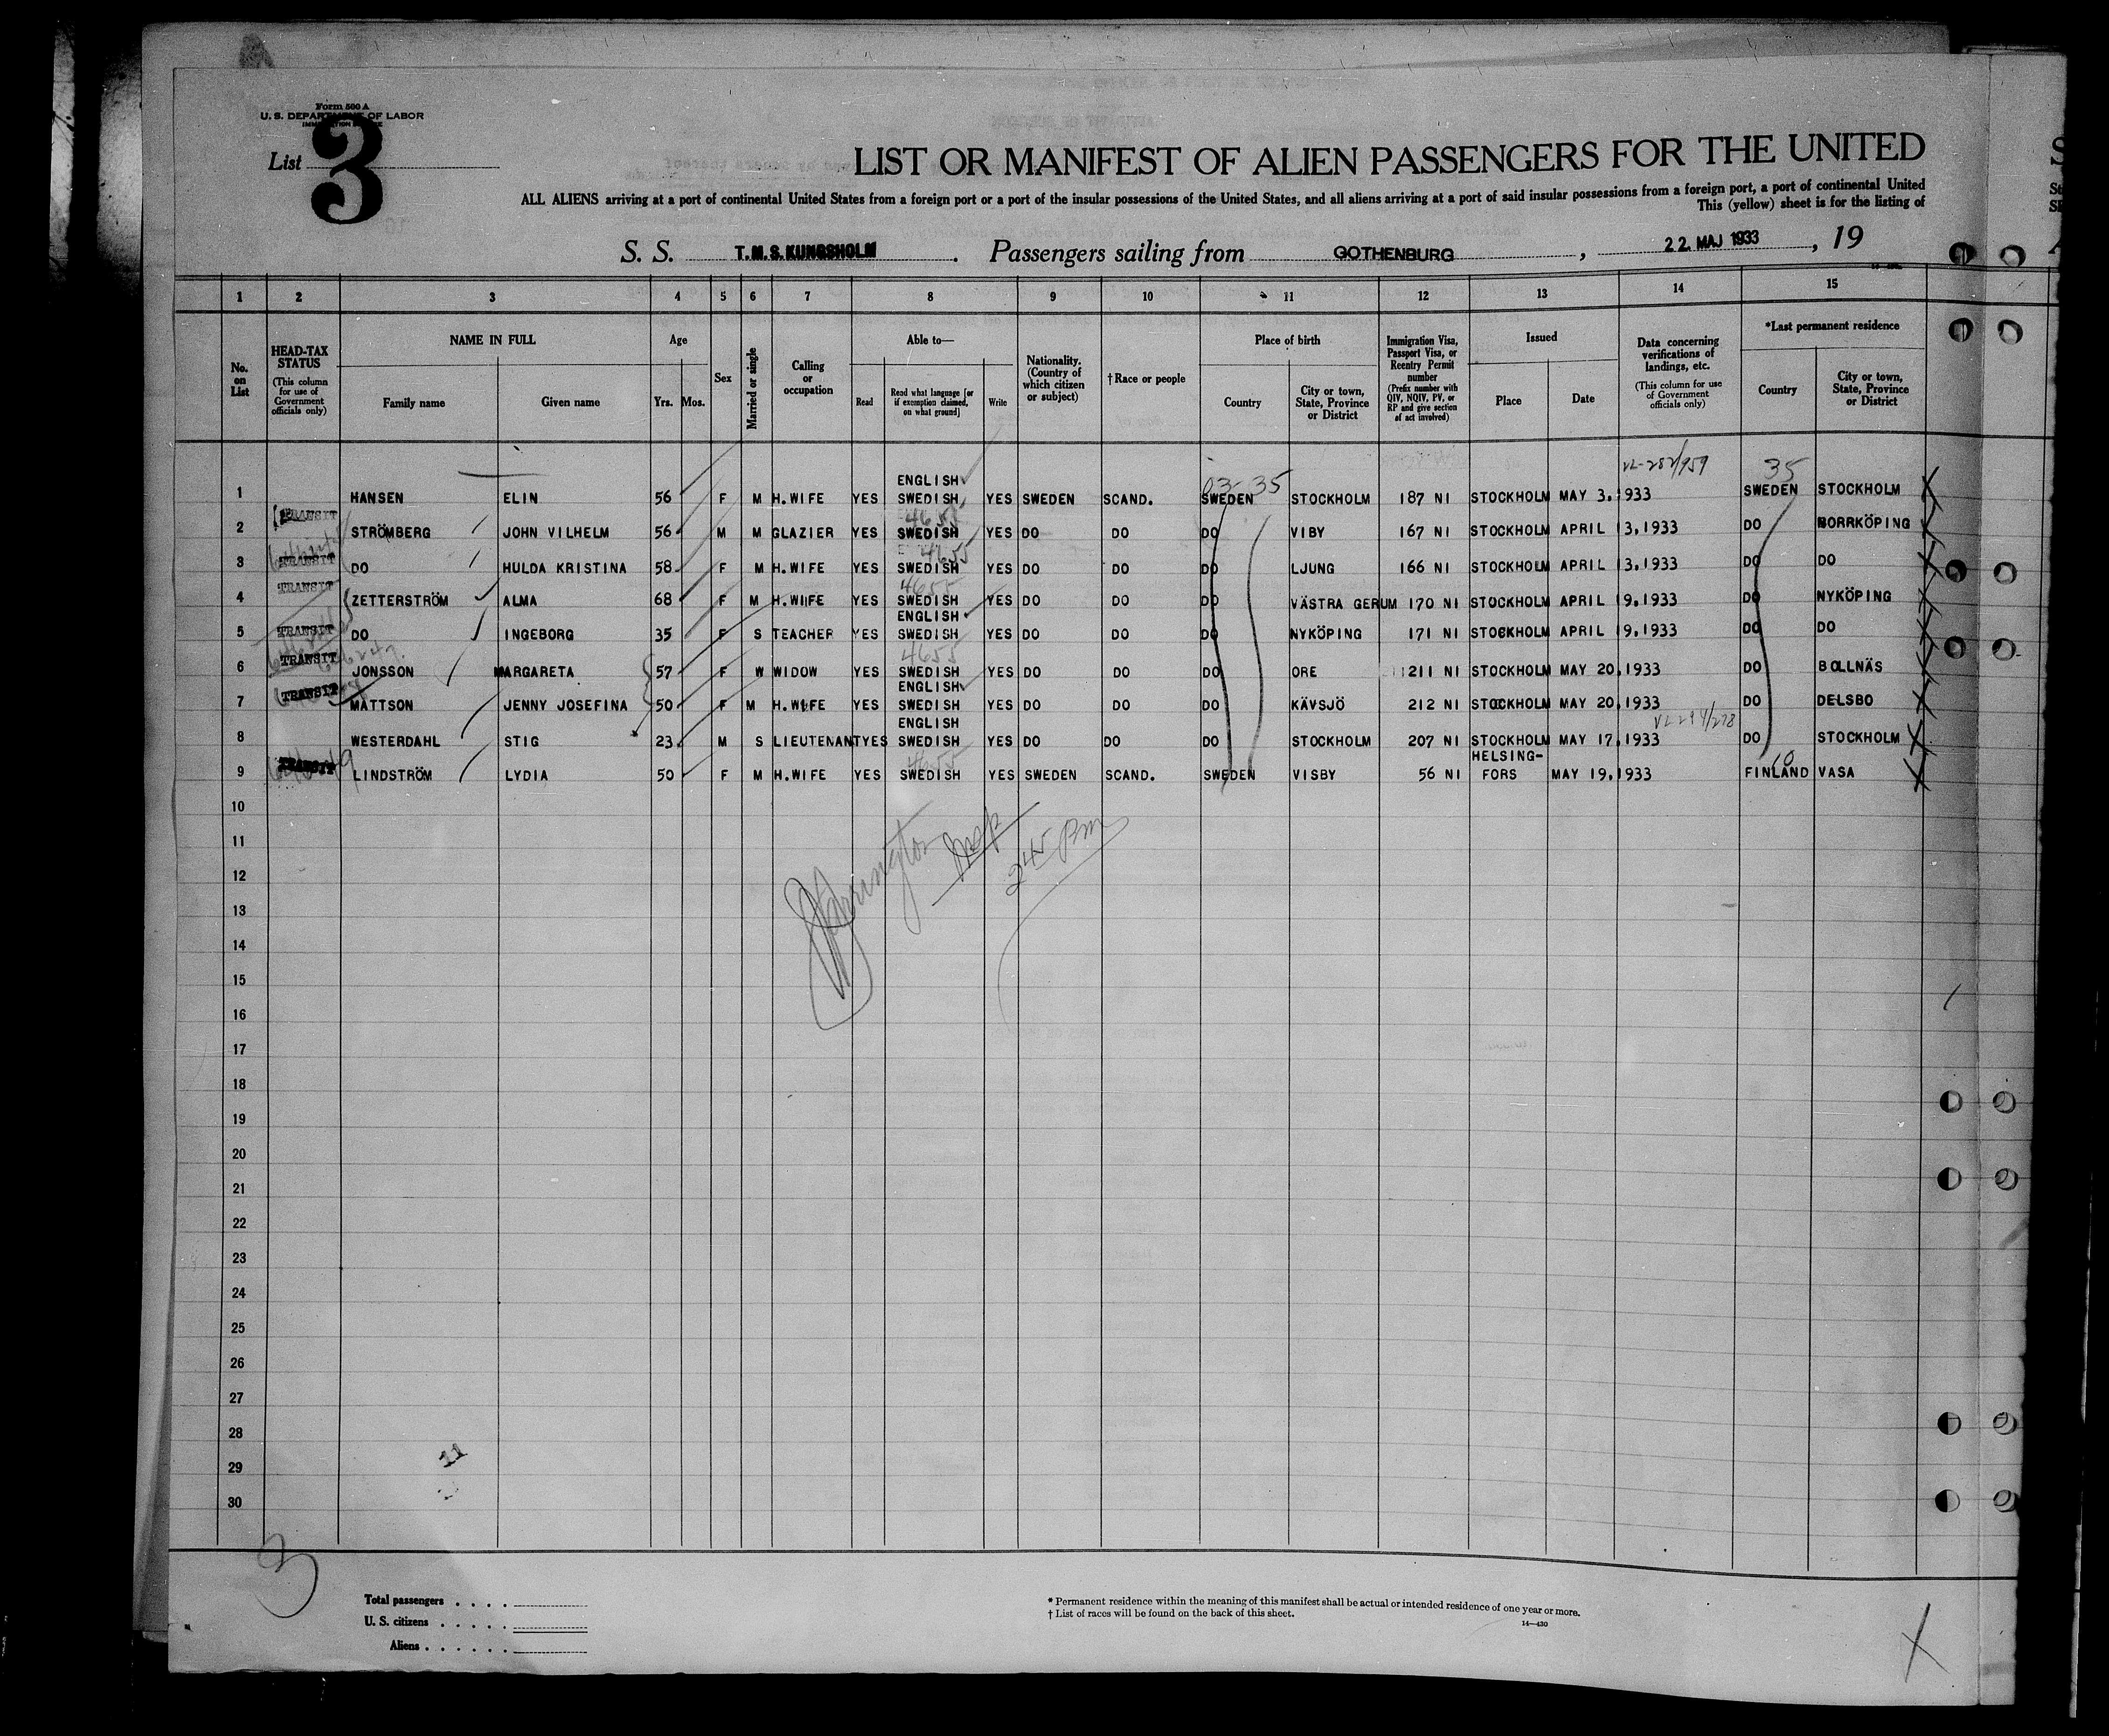 Form 500 A
U. S. DEPARTMENT OF LABOR
List 3
LIST OR MANIFEST OF ALIEN PASSENGERS FOR THE UNITED
ALL ALIENS arriving at a port of continental United States from a foreign port or a port of the insular possessions of the United States, and all aliens arriving at a port of said insular possessions from a foreign port, a port of continental United
This (yellow) sheet is for the listing of
S. S. T.M.S. KUNGSHOLM. Passengers sailing from GOTHENBURG, 22 MAJ 1933, 19
1 2 3 4 5 6 7 8 9 10 11 12 13 14 15
No. on List
HEAD-TAX STATUS (This column for use of Government officials only)
NAME IN FULL
Family name
Given name
Age
Yrs. Mos.
Sex
Married or single
Calling or occupation
Able to—
Read
Read what language [or if exemption claimed, on what ground]
Write
Nationality. (Country of which citizen or subject)
†Race or people
Place of birth
Country
City or town, State, Province or District
Immigration Visa, Passport Visa, or Reentry Permit number (Prefix number with QIV, NQIV, PV, or RP and give section of act involved)
Issued
Place
Date
Data concerning verifications of landings, etc. (This column for use of Government officials only)
*Last permanent residence
Country
City or town, State, Province or District
03-35
35
1 HANSEN ELIN 56 F M H.WIFE YES ENGLISH SWEDISH YES SWEDEN SCAND. SWEDEN STOCKHOLM 187 NI STOCKHOLM MAY 3,1933 SWEDEN STOCKHOLM
2 TRANSIT STRÖMBERG JOHN VILHELM 56 M M GLAZIER YES 4655 SWEDISH YES DO DO DO VIBY 167 NI STOCKHOLM APRIL 3,1933 DO NORRKÖPING
3 TRANSIT DO HULDA KRISTINA 58 F M H.WIFE YES 4655 SWEDISH YES DO DO DO LJUNG 166 NI STOCKHOLM APRIL 3,1933 DO DO
4 TRANSIT ZETTERSTRÖM ALMA 68 F M H.WIFE YES 4655 SWEDISH YES DO DO DO VÄSTRA GERUM 170 NI STOCKHOLM APRIL 9,1933 DO NYKÖPING
5 TRANSIT DO INGEBORG 35 F S TEACHER YES ENGLISH SWEDISH YES DO DO DO NYKÖPING 171 NI STOCKHOLM APRIL 9,1933 DO DO
6 TRANSIT JONSSON MARGARETA 57 F W WIDOW YES 4655 SWEDISH YES DO DO DO ORE 211 NI STOCKHOLM MAY 20,1933 DO BOLLNÄS
7 TRANSIT MATTSON JENNY JOSEFINA 50 F M H.WIFE YES ENGLISH SWEDISH YES DO DO DO KÄVSJÖ 212 NI STOCKHOLM MAY 20,1933 DO DELSBO
8 WESTERDAHL STIG 23 M S LIEUTENANT YES ENGLISH SWEDISH YES DO DO DO STOCKHOLM 207 NI STOCKHOLM MAY 17,1933 DO STOCKHOLM
9 TRANSIT LINDSTRÖM LYDIA 50 F M H.WIFE YES 4655 SWEDISH YES SWEDEN SCAND. SWEDEN VISBY 56 NI HELSING-FORS MAY 19,1933 FINLAND VASA
10
11
12
13
14
15
16
17
18
19
20
21
22
23
24
25
26
27
28
29
30
245 Pm
11
3
Total passengers
U. S. citizens
Aliens
* Permanent residence within the meaning of this manifest shall be actual or intended residence of one year or more.
† List of races will be found on the back of this sheet.
14—430